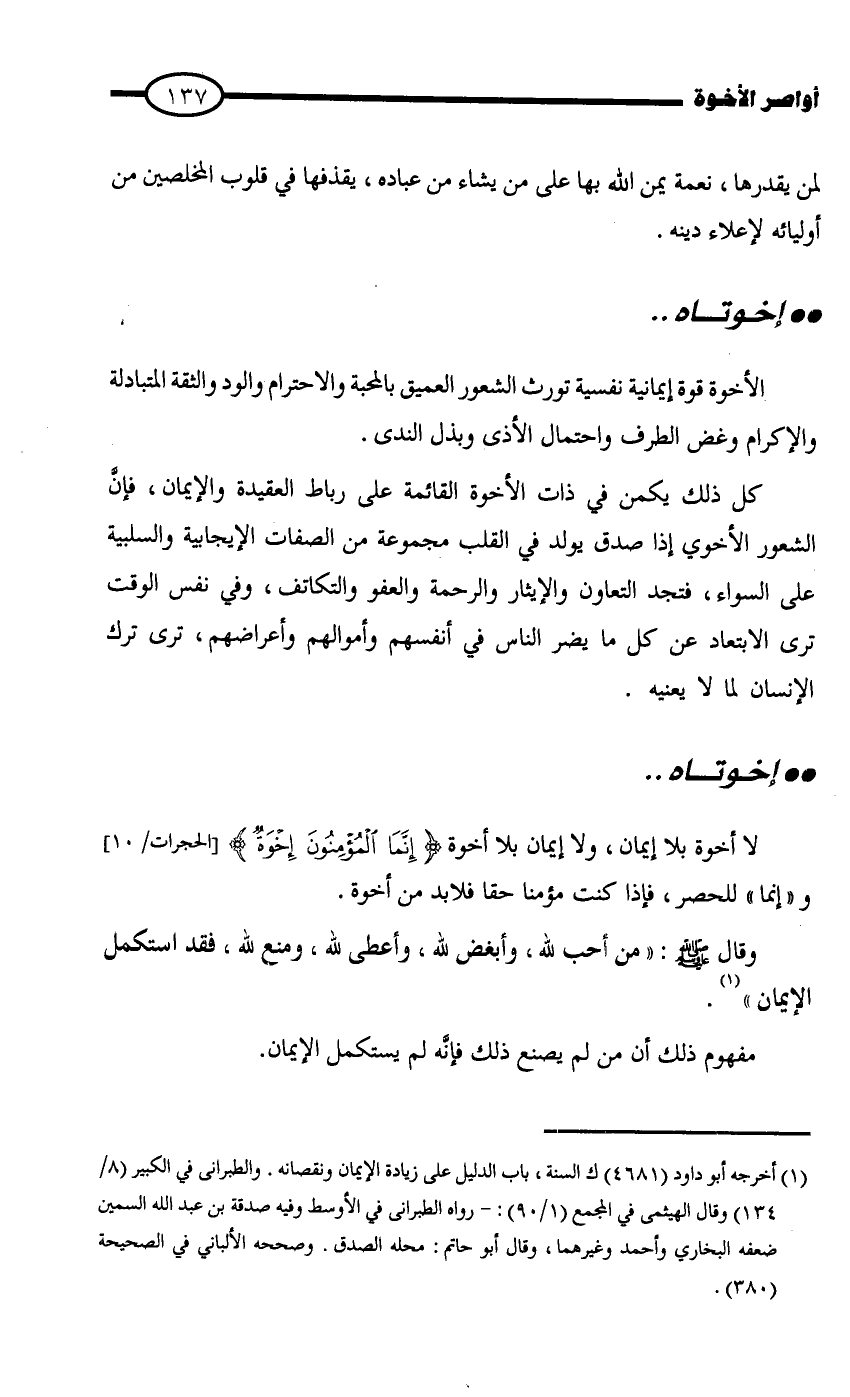 أواصر الأخوة ١٣٧
لمن يقدرها ، نعمة يمن الله بها على من يشاء من عباده ، يقذفها في قلوب المخلصين من
أوليائه لإعلاء دينه .
●● إخـوتــاه ..
الأخوة قوة إيمانية نفسية تورث الشعور العميق بالمحبة والاحترام والود والثقة المتبادلة
والإكرام وغض الطرف واحتمال الأذى وبذل الندى .
كل ذلك يكمن في ذات الأخوة القائمة على رباط العقيدة والإيمان ، فإنَّ
الشعور الأخوي إذا صدق يولد في القلب مجموعة من الصفات الإيجابية والسلبية
على السواء ، فتجد التعاون والإيثار والرحمة والعفو والتكاتف ، وفي نفس الوقت
ترى الابتعاد عن كل ما يضر الناس في أنفسهم وأموالهم وأعراضهم ، ترى ترك
الإنسان لما لا يعنيه .
●● إخـوتــاه ..
لا أخوة بلا إيمان ، ولا إيمان بلا أخوة ﴿ إِنَّمَا ٱلْمُؤْمِنُونَ إِخْوَةٌ ﴾ [الحجرات/ ١٠]
و «إنما» للحصر ، فإذا كنت مؤمنا حقا فلابد من أخوة .
وقال ﷺ : « من أحب لله ، وأبغض لله ، وأعطى لله ، ومنع لله ، فقد استكمل
الإيمان »(١) .
مفهوم ذلك أن من لم يصنع ذلك فإنَّه لم يستكمل الإيمان.
(١) أخرجه أبو داود (٤٦٨١) ك السنة ، باب الدليل على زيادة الإيمان ونقصانه . والطبرانى في الكبير (٨/
١٣٤) وقال الهيثمى في المجمع (٩٠/١) : - رواه الطبرانى في الأوسط وفيه صدقة بن عبد الله السمين
ضعفه البخاري وأحمد وغيرهما ، وقال أبو حاتم : محله الصدق . وصححه الألباني في الصحيحة
(٣٨٠) .